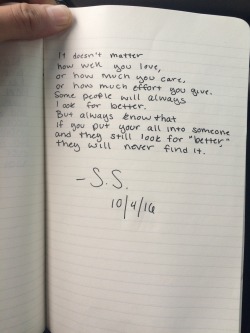 It doesn't matter
how well you love,
or how much you care,
or how much effort you give.
Some people will always
look for better.
But always know that
if you put your all into someone
and they still look for "better,"
they will never find it.
- S.S.
10/4/16